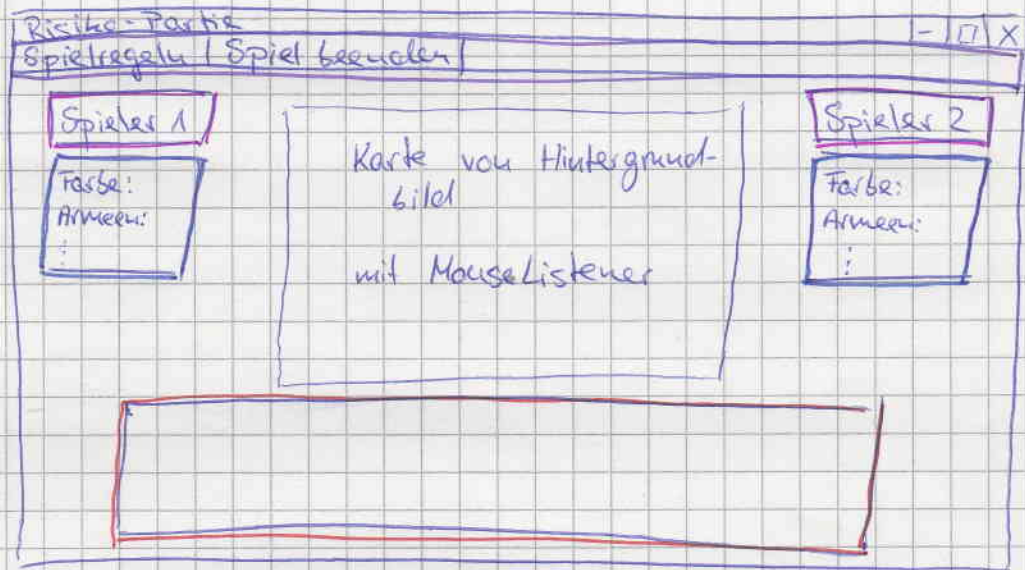 Risiko-Partie - □ X
Spielregeln | Spiel beenden |
Spieler 1
Farbe:
Armeen:
:
Karte von Hintergrund-
bild
mit MouseListener
Spieler 2
Farbe:
Armeen:
: